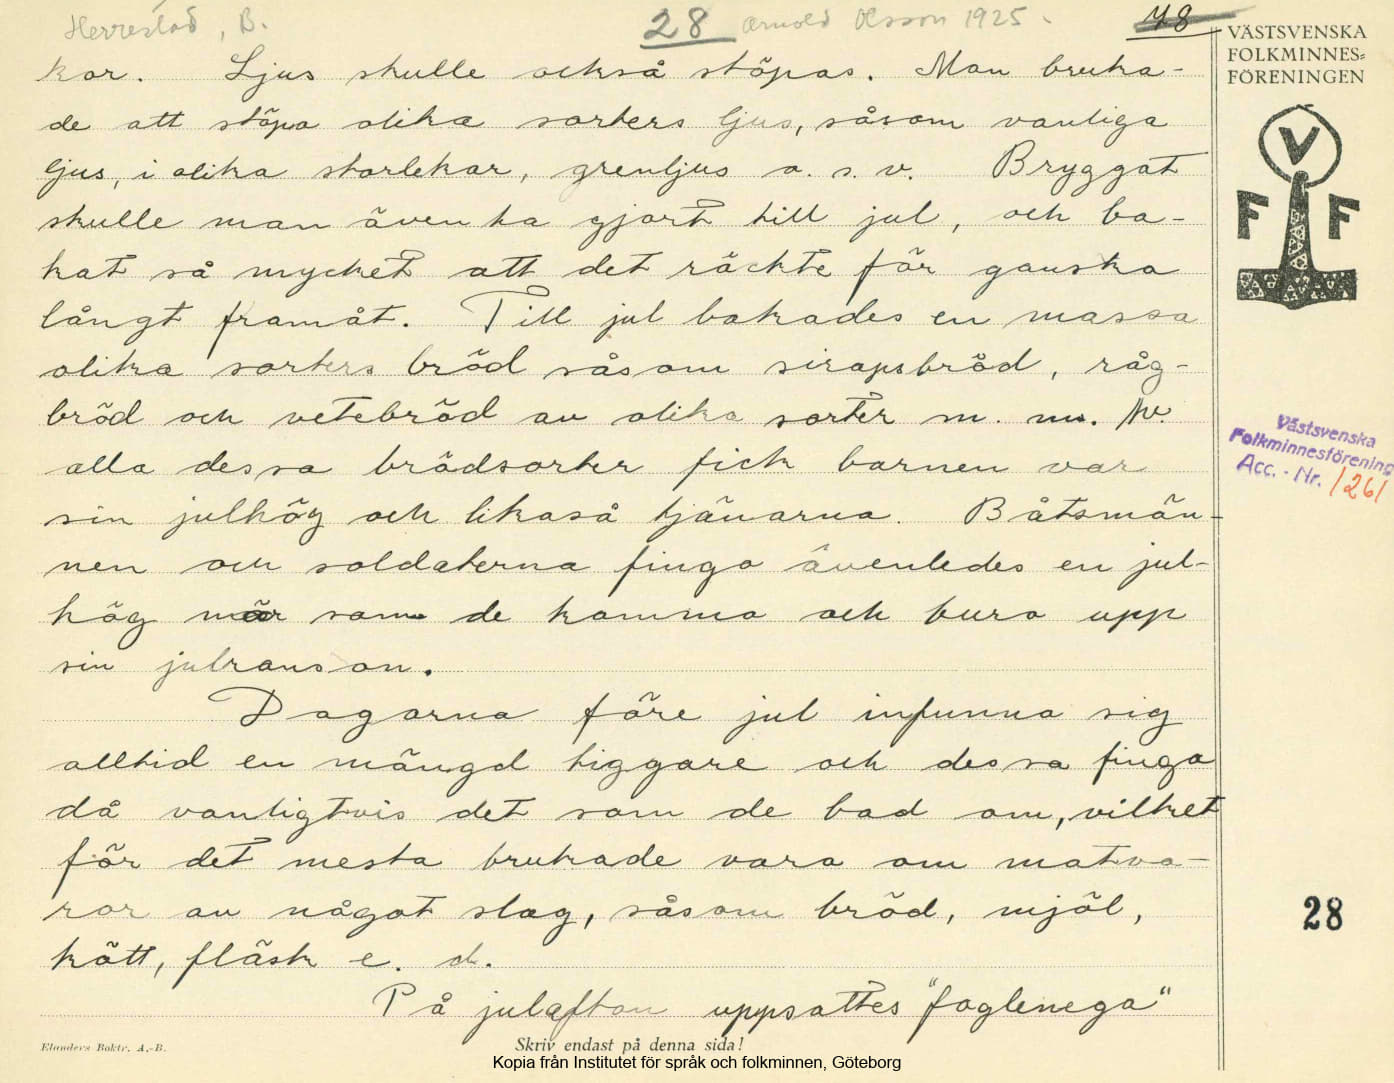 Herrestad, B.
28
Arnold Olsson 1925.
78
VÄSTSVENSKA
FOLKMINNES=
FÖRENINGEN
V
F F
kor. Ljus skulle också stöpas. Man bruka-
de att stöpa olika sorters ljus, såsom vanliga
ljus, i olika storlekar, grenljus o. s. v. Bryggat
skulle man även ha gjort till jul, och ba-
kat så mycket att det räckte för ganska
långt framåt. Till jul bakades en massa
olika sorters bröd såsom sirapsbröd, råg-
bröd och vetebröd av olika sorter m. m. Av
alla dessa brödsorter fick barnen var
sin julhög och likaså tjänarna. Båtsmän-
nen och soldaterna fingo ävenledes en jul-
hög när som de kommo och buro upp
sin julranson.
Dagarna före jul infunno sig
alltid en mängd tiggare och dessa fingo
då vanligtvis det som de bad om, vilket
för det mesta brukade vara om matva-
ror av något slag, såsom bröd, mjöl,
kött, fläsk e. d.
På julafton uppsattes "foglenega"
Västsvenska
Folkminnesförening
Acc. - Nr. 1261
28
Elanders Boktr. A.-B.
Skriv endast på denna sida!
Kopia från Institutet för språk och folkminnen, Göteborg